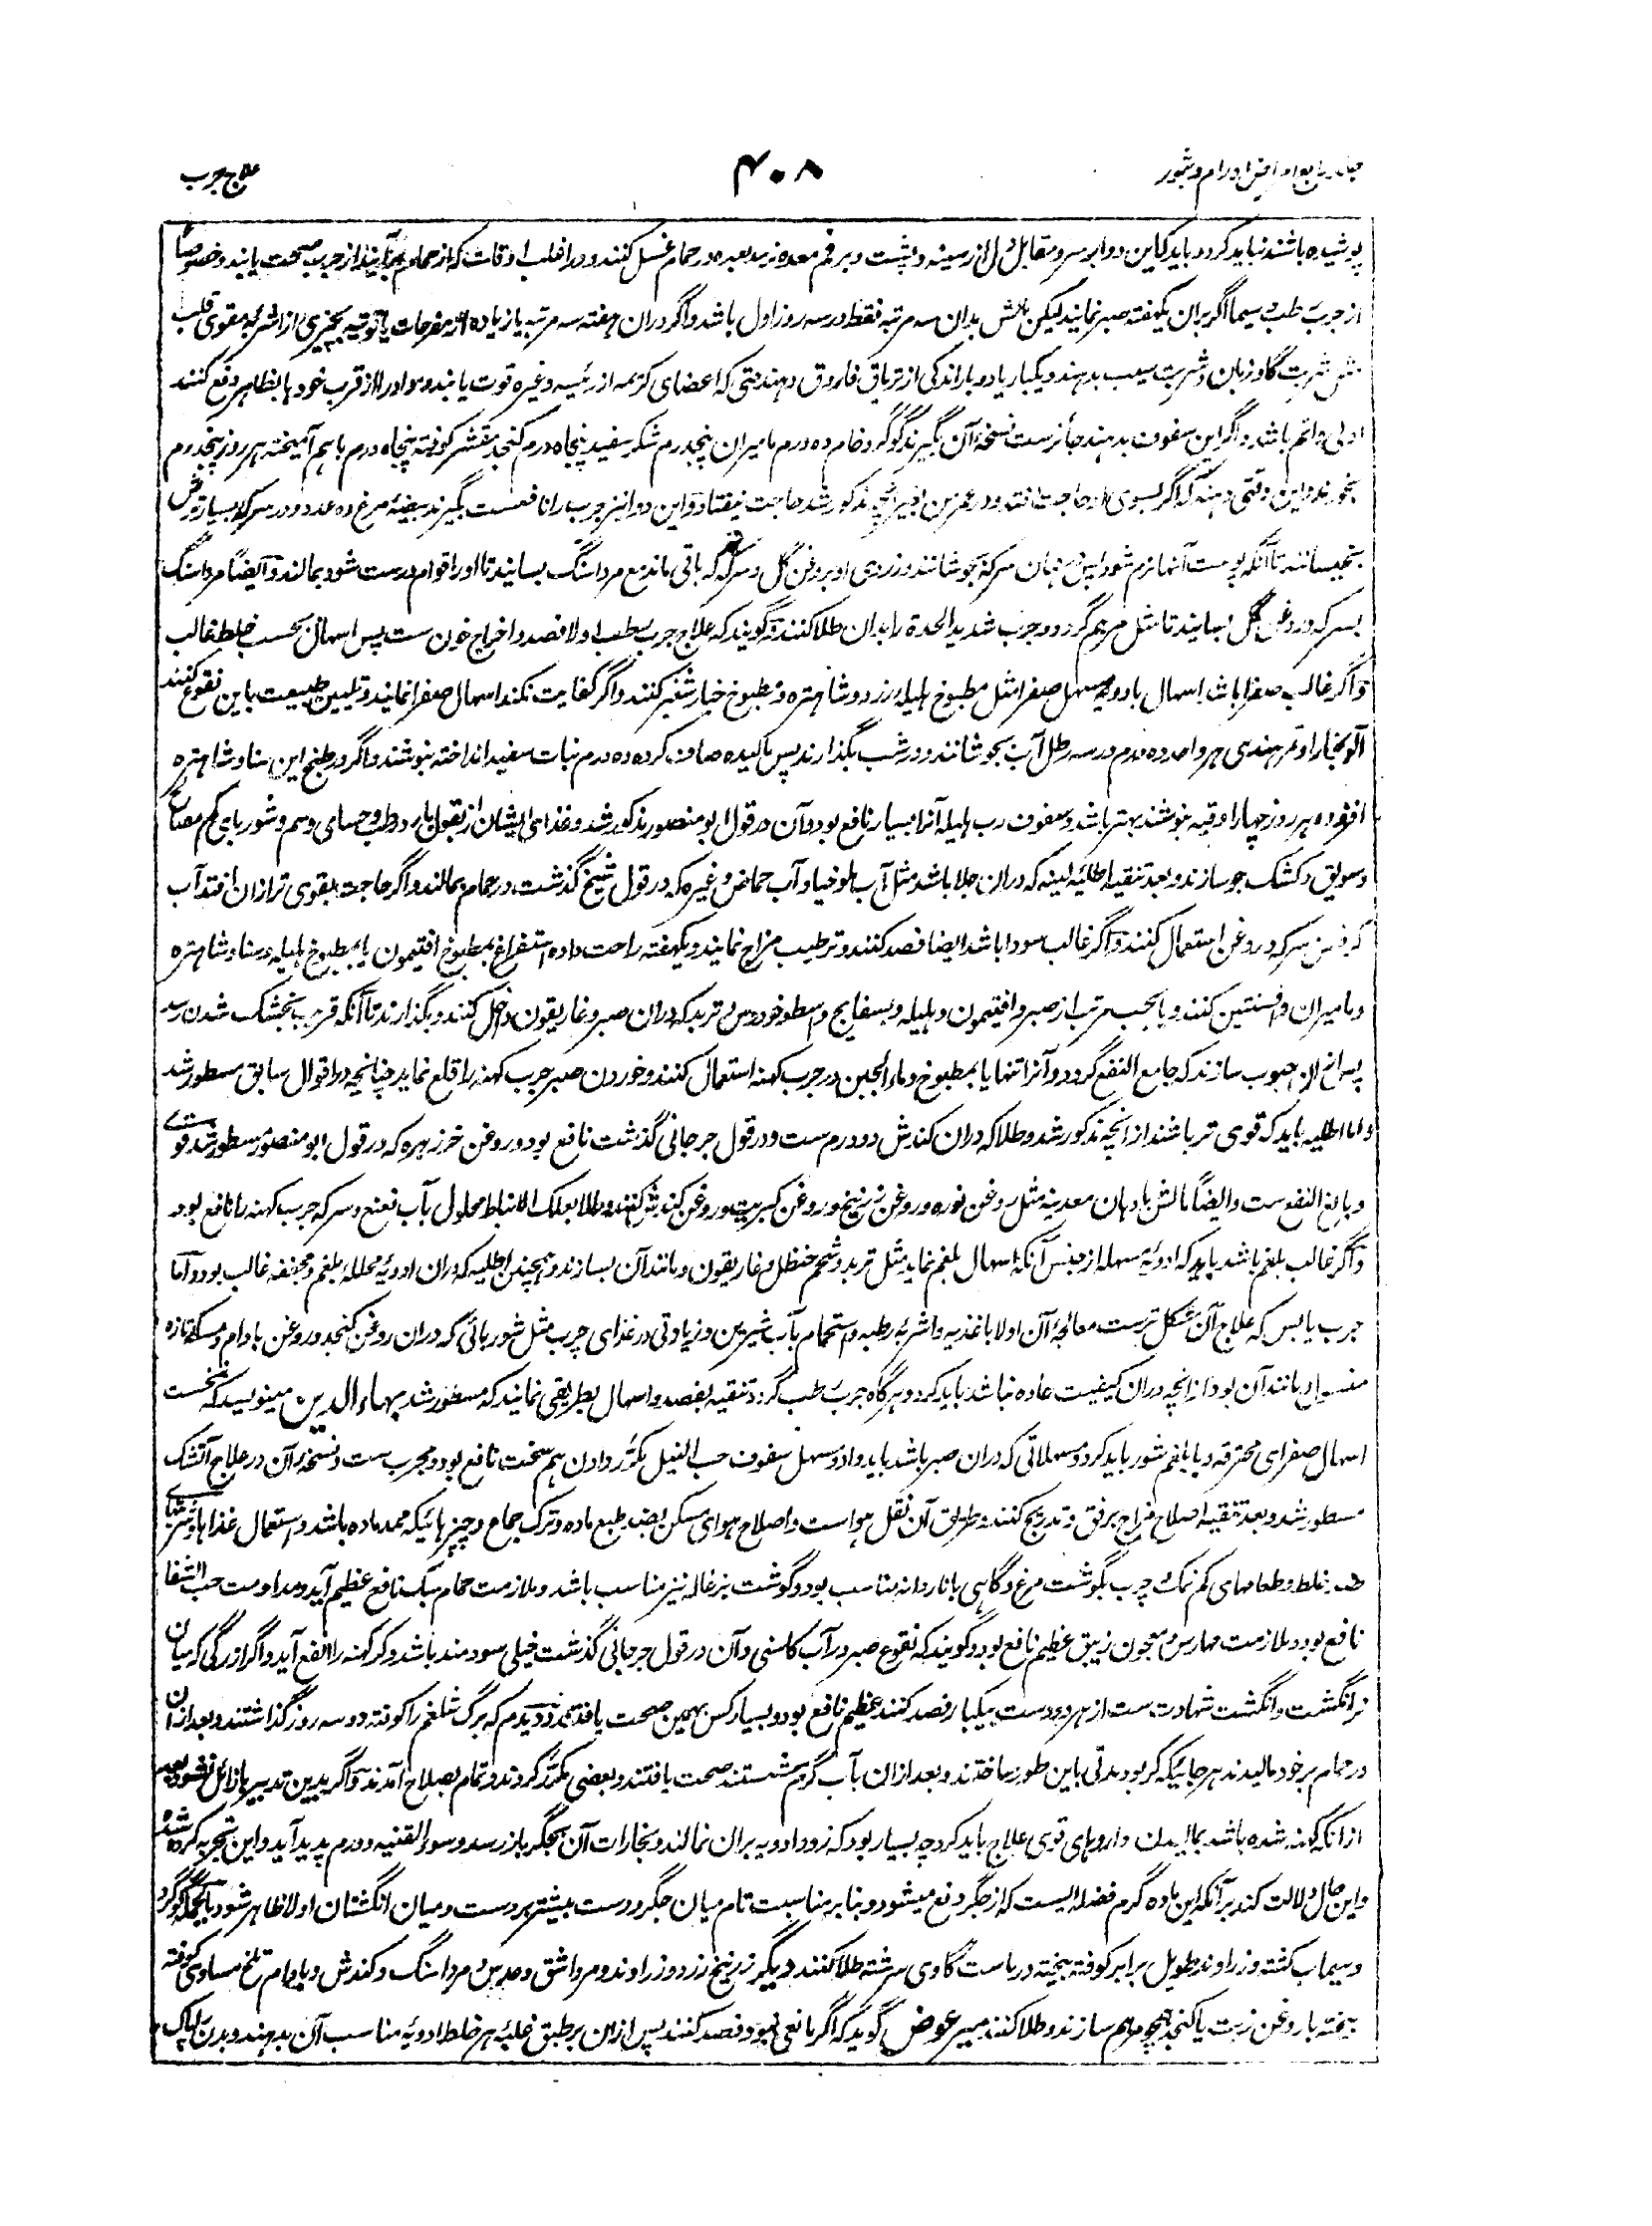 علاج جرب
۴۰۸
اورام و بثور
پوشیده باشند نباید کرد و باید کاین دوا بر سر و مقابل دل از سینه و پشت و بر فم معده نرسد بعده در حمام غسل کنند و در اغلب اوقات که از حمام برآیند از جرب صحت یابند و خصوصاً
از جرب رطب سیما اگر بران یکهفته صبر نمایند لیکن مالش بدان سه مرتبه فقط در سه روز اول باشد و اگر دران هفته سه مرتبه یا زیاده از مفرحات یاقوتیه بچیزی از اشربه مقوی قلب
مثل شربت گاوزبان و شربت سیب بدهند و یکبار یا دو بار اندکی از تریاق فاروق دهند حتی که اعضای کریمه از رئیسه و غیره قوت یابند و مواد را از قرب خود ها بظاهر دفع کنند
اولی و اتم باشد و اگر این سفوف بدهند جائزست نسخه آن بگیرند گوگرد خام ده درم مامیران پنجدرم شکر سفید پنجاه درم کنجد مقشر کوفته پنجاه درم باهم آمیخته هر روز پنجدرم
بخورند و این وقتی دهند که اگر بسوی او حاجت افتد و در عمر من بغیر آنچه مذکور شد حاجت نیفتاد و این دوا نیز جرب را نافعست بگیرند بیضه مرغ ده عدد و در سرکه بسیار ترش
بخیسانند تا آنکه پوست آنها نرم شود پس همان سرکه بجوشانند و زردی او بروغن گل و سرکه که باقی ماند مع مرداسنگ بسایند تا او را قوام درست شود بمالند و ایضاً مرداسنگ
بسرکه و روغن گل بسایند تا مثل مرهم گردد و جرب شدید الحدة را بدان طلا کنند و گویند که علاج جرب رطب اولا فصد و اخراج خون ست پس اسهال بحسب خلط غالب
و اگر غالب صفرا باشد اسهال بادویه مسهل صفرا مثل مطبوخ هلیله زرد و شاهتره و مطبوخ خیار شنبر کنند و اگر کفایت نکند اسهال صفرا نمایند و تلیین طبیعت باین نقوع کنند
آلو بخارا و تمر هندی هر واحد ده درم در سه رطل آب بجوشانند و در شب بگذارند پس مالیده صاف کرده ده درم نبات سفید انداخته بنوشند و اگر در طبخ این سنا و شاهتره
افزوده هر روز چهار اوقیه بنوشند بهتر باشد و سفوف رب هلیله آنرا بسیار نافع بود و آن در قول ابو منصور مذکور شد و غذای ایشان از بقول بارد و رطب و حسای دسم و شوربای کم مصالح
و سویق و کشک جو سازند و بعد تنقیه اطلیه لینه که دران جلا باشد مثل آب ملوخیا و آب حماض و غیره که در قول شیخ گذشت در حمام بمالند و اگر حاجت بقوی تر ازان افتد آب
کرفس سرکه و روغن استعمال کنند و اگر غالب سودا باشد ایضا فصد کنند و ترطیب مزاج نمایند و یکهفته راحت داده استفراغ بمطبوخ افتیمون یا بمطبوخ هلیله و سنا و شاهتره
و مامیران و افسنتین کنند و یا بحب مرتب از صبر و افتیمون و هلیله و بسفایج و اسطوخودوس و تربد که دران صبر و غاریقون داخل کنند و بگذارند تا آنکه قریب بخشک شدن رسد
پس ازان حبوب سازند که جامع النفع گردد و آنرا تنها یا بمطبوخ و ماء الجبن در جرب کهنه استعمال کنند و خوردن صبر جرب کهنه را قلع نماید چنانچه در اقوال سابق مسطور شد
و اما اطلیه باید که قوی تر باشند از آنچه مذکور شد و طلا که دران کندش دو درم ست و در قول جرجانی گذشت نافع بود و روغن خرزهره که در قول ابو منصور مسطور شد قوی
و بالغ النفع ست و ایضاً مالش بادهان معدنیه مثل روغن نوره و روغن زرنیخ و روغن کبریت و روغن کندش کنند و طلا بعلک الانباط محلول بآب نعنع و سرکه جرب کهنه را نافع بود
و اگر غالب بلغم باشد باید که ادویه مسهله از جنس آنکه اسهال بلغم نماید مثل تربد و شحم حنظل و غاریقون و مانند آن بسازند و همچنین اطلیه که دران ادویه محلله بلغم و مجففه غالب بود و اما
جرب یابس که علاج آن مشکل ترست معالجه آن اولا باغذیه و اشربه رطبه و استحمام بآب شیرین و زیادتی در غذای چرب مثل شوربائی که دران روغن کنجد و روغن بادام و مسکه تازه
مغسول و مانند آن بود از آنچه دران کیفیت حاده نباشد باید کرد و هرگاه جرب رطب گردد تنقیه بفصد و اسهال بطریقی نمایند که مسطور شد بهاء الدین مینویسد که نخست
اسهال صفرای محترقه و یا بلغم شور باید کرد و مسهلاتی که دران صبر باشد باید داد و مسهل سفوف حب النیل مکرر دادن هم سخت نافع بود و مجرب ست و نسخه آن در علاج آتشک
مسطور شد و بعد تنقیه اصلاح مزاج برفق و تدریج کنند و طریق آن نقل هواست و اصلاح هوای مسکن بضد طبع ماده و ترک جماع و چیزهائیکه ممد ماده باشد و استعمال غذاها و شربتهای
ضد خلط و طعامهای کم نمک چرب بگوشت مرغ و گاهی با ناردانه مناسب بود و گوشت بزغاله نیز مناسب باشد و ملازمت حمام سبک نافع عظیم آید و مداومت حب الشفا
نافع بود و ملازمت مهارس و معجون زیبق عظیم نافع بود و گویند که نقوع صبر در آب کاسنی و آن در قول جرجانی گذشت خیلی سودمند باشد و گر کهنه را انفع آید و اگر از رگی که میان
نرانگشت و انگشت شهادت ست از هر دو دست بیکبار فصد کنند عظیم نافع بود و بسیار کس بهمین صحت یافتند و دیدم که برگ شلغم را کوفته دو سه روز گذاشتند و بعد ازان
در حمام بر خود مالیدند هر جائیکه گر بود مدتی باین طور ساختند و بعد ازان بآب گرم شستند صحت یافتند و بعضی مکرر کردند و تمام بصلاح آمدند و اگر بدین تدبیر زائل نشود بعد
ازانکه کهنه شده باشد بمالیدن داروهای قوی علاج باید کرد چه بسیار بود که زود ادویه بران نمالند و بخارات آن بجگر باز رسد و سوء القنیه و ورم پدید آید و این تجربه کرده شد
و این حال دلالت کند بر آنکه این ماده گرم فضله ایست که از جگر دفع میشود و بنا بر مناسبت تام میان جگر و دست بیشتر بر دست و میان انگشتان اولا ظاهر شود بالجمله گوگرد
و سیماب کشته و زراوند طویل برابر کوفته بیخته در ماست گاوی سرشته طلا کنند دیگر زرنیخ زرد و زراوند و مرداشق و عدس و مرداسنگ و کندش و بادام تلخ مساوی کوفته
بیخته با روغن زیت یا کنجد همچو مرهم سازند و طلا کنند میر عوض گوید که اگر مانعی نبود فصد کنند پس ازان بر طبق غلبه هر خلط ادویه مناسب آن بدهند و بدن را پاک